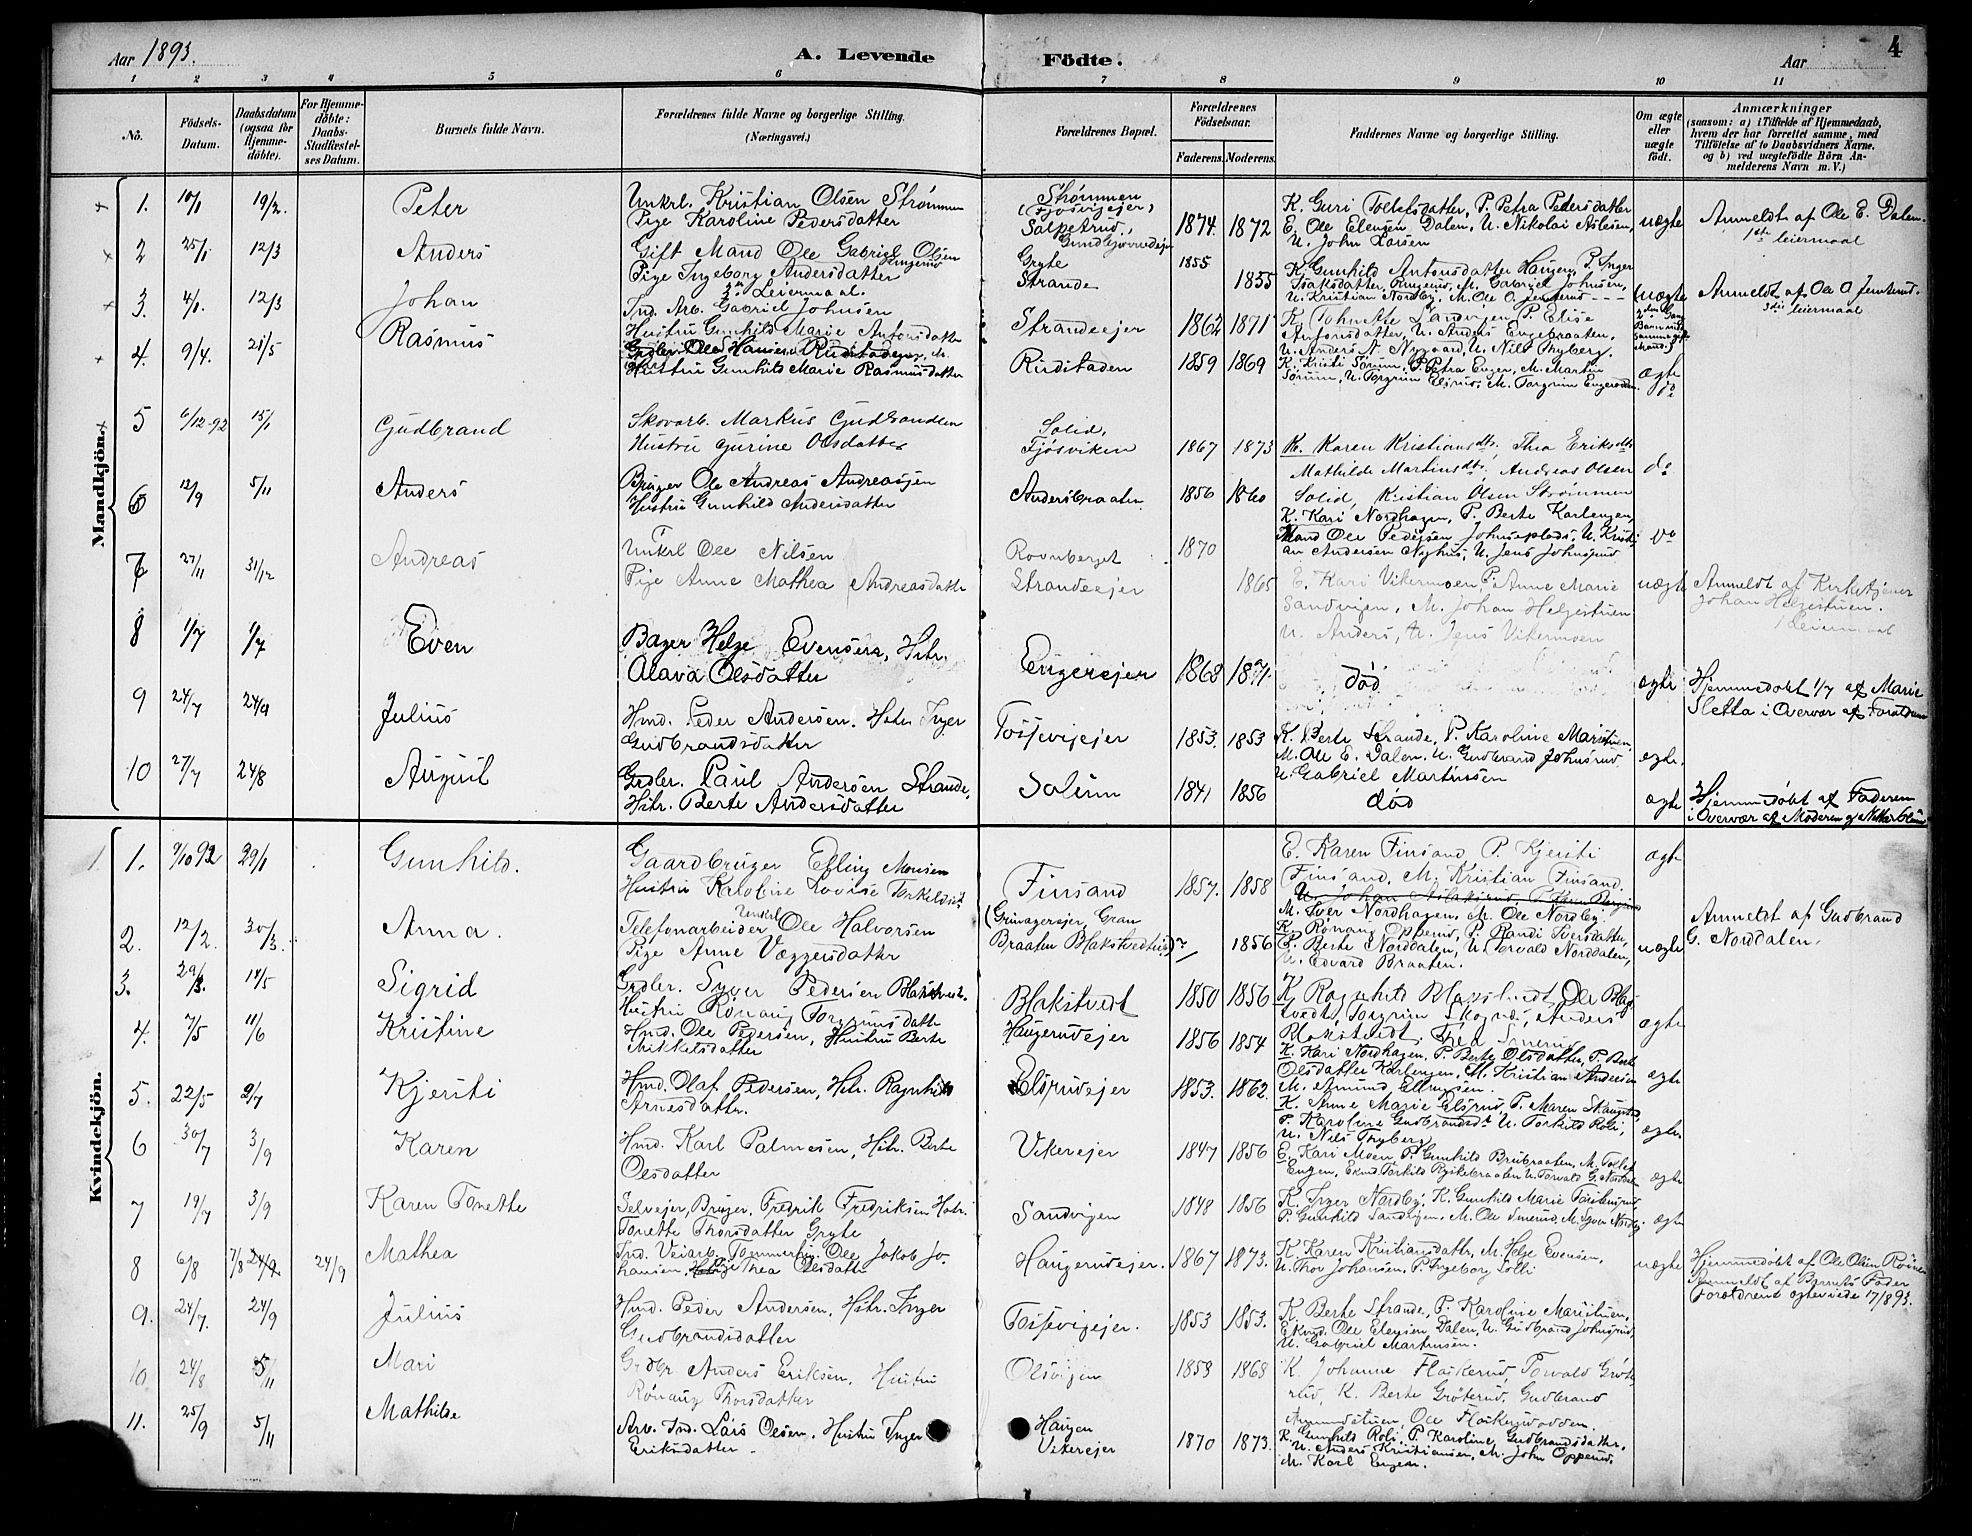 Aar 1893.
A. Levende Fødte.
Aar
4
1 2 3 4 5 6 7 8 9 10 11
No.
Födsels-Datum.
Daabsdatum (ogsaa for Hjemmedöbte).
For Hjemmedöbte: Daabs-Stadfæstelses Datum.
Barnets fulde Navn.
Forældrenes fulde Navne og borgerlige Stilling. (Næringsvei.)
Forældrenes Bopæl.
Forældrenes Födselsaar.
Faderens. Moderens.
Faddernes Navne og borgerlige Stilling.
Om ægte eller uægte födt.
Anmærkninger (saasom: a) i Tilfælde af Hjemmedaab, hvem der har forrettet samme, med Tilföielse af to Daabsvidners Navne, og b) ved uægtefödte Börn Anmelderens Navn m. V.)
Mandkjön.
1. 10/1 19/2. Peter
Unkrl. Kristian Olsen Strømmen
Pige Karoline Pedersdatter
Strømmen
1874. 1872
K. Guri Tollefsdatter, P. Petra Pedersdatter
E. Ole Elensen Dalen, U. Nikolai Nilsen,
U. John Larsen
uægte
Anmeldt af Ole E. Dalen.
1ste leiermaal
2 25/1 12/3 Anders
Gift Mand Ole Gabriel Olsen
Pige Ingeborg Andersdatter
2det Leiermaal.
Gryte
Strande
1855 1855
K. Gunhild Antonsdatter Haugen, P. Inger
Isaksdatter, M. Gabriel Johnsen,
U. Kristian Nordby, M. Ole O. Jemterud
uægte
Anmeldt af Ole O Jemterud.
3. 4/1. 12/3 Johan
Ind. Arb. Gabriel Johnsen
Hustru Gunhild Marie Antonsdatter
Strandeejer
1862 1871
K. Johnette Sandvigen P. Elise
Antonsdatter, U. Anders Engebraaten,
U. Anders N. Nygaard, U. Nils Thyberg.
4. 9/4. 21/5 Rasmus
Grdbr. Ole Hansen Rudstaden
Hustru Gunhild Marie Rasmusdatter
Rudstaden
1859 1869
K. Kristi Sørum, P. Petra Enger, M. Martin
Sørum, U. Torgrim Elsrud, M. Torgrim Engerodden
ægte
5 6/12 92 15/1 Gudbrand
Skovarb. Markus Gudbrandsen
Hustru Gurine Olsdatter
Solid,
Fjøsviken
1867 1873
K. Karen Kristiansdtr, Thea Eriksdtr
Mathilde Martinsdtr, Andreas Olsen
Solid, Kristian Olsen Strømmen
do
6 12/9 5/11 Anders
Bruger Ole Andreas Andreassen
Hustru Gunhild Andersdatter
Andersbraaten
1856 1860
K. Kari Nordhagen, P. Berte Karlengen,
Mand Ole Pedersen Johnsplads, U. Kristi
an Andersen Nyhus, U. Jens Johnsrud
do
7 27/11 31/12 Andreas
Unkrl Ole Nilsen
Pige Anne Mathea Andreasdatter
Rovnberget
Strandeejer
1870 1865
E. Kari Vikermoen, P. Anne Marie
Sandvigen, M. Johan Helgestuen
U. Anders, U. Jens Vikermoen
uægte
Anmeldt af Kirketjener
Johan Helgestuen.
1 Leiermaal
8 1/7 1/7 Even
Bager Helge Evensen, Hstr.
Olava Olsdatter
Engerejer
1868 1871.
død
ægte
Hjemmedøbt 1/7 af Marie
Sletta i Overvær af Forældrene
9 24/7 24/9 Julius
Hmd. Peder Andersen. Hstr Inger
Gudbrandsdatter
Tosseviejer
1853. 1853
K. Berte Strande, P. Karoline Maristuen,
M. Ole E. Dalen, U. Gudbrand Johnsrud
U. Gabriel Martinsen
ægte.
10 27/7 24/8 August
Grdbr. Paul Andersen Strande,
Hstr. Berte Andersdatter
Solum
1841 1856
død
ægte
Hjemmedøbt af Faderen
i Overvær af Moderen
Kvindekjön.
1. 9/10 92 29/1 Gunhild.
Gaardbruger Elling Monsen
Hustru Karoline Lovise Torkildsdtr
Finsand
1857. 1858
E. Karen Finsand, P. Kjersti
Finsand, M. Kristian Finsand.
M. Iver Nordhagen, M. Ole Nordby.
ægte
2. 12/2. 30/3. Anna.
Telefonarbeider Unkrl Ole Halvorsen
Pige Anne Væggersdatter
Braaten Blakstvedtiejer
1856
K. Rönaug Opperud, P. Randi Iversdatter,
P. Berte Norddalen, U. Torvald Norddalen,
U. Edvard Braaten.
uægte
Anmeldt af Gudbrand
G. Norddalen.
3. 29/3. 14/5 Sigrid
Grdbr. Syver Pedersen Blakstvedt.
Hustru Rönaug Torgrimsdatter
Blakstvedt
1850 1856
K. Ragnhild Blakstvedt, Ole Blak
stvedt, Torgrim Skogrud, Anders
Blakstvedt, Thea Smerud
ægte
4. 7/5 11/6 Kristine
Hmd. Ole Pedersen, Hustru Berte
Mikkelsdatter
Haugerudejer
1856 1854
K. Kari Nordhagen, P. Berte Olsdatter, P. Berte
Olsdatter Karlengen, M. Kristian Andersen
M. Amund Ellingsen.
ægte
5. 22/5 2/7 Kjersti
Hmd. Olaf Pedersen, Hstr. Ragnhild
Arnesdatter.
Elsrudejer
1853. 1862.
K. Anne Marie Elsrud, P. Maren Skaugstad,
P. Karoline Gudbrandsdtr U. Torkild Roli,
U. Nils Thyberg
ægte.
6 30/7 3/9 Karen
Hmd. Karl Palmesen, Hstr. Berte
Olsdatter
Vikerejer
1847 1856
E. Kari Moen, P. Gunhild Brubraaten, M. Tollef
Engen, Torkild Rykkebraaten U. Torvald G. Norddalen
ægte
7 19/7 3/9 Karen Tonette
Selvejer Bruger, Fredrik Fredriksen Hstr.
Tonette Thorsdatter Gryte
Sandvigen
1848 1856
K. Inger Nordby, K. Gunhild Marie
P. Gunhild Sandvigen, M. Ole Smerud, M. Syver Nordby.
ægte
8 6/8 7/8 24/9. 24/9 Mathea
Ind. Veiarb. Tømmerhug. Ole Jakob Jo-
hansen, Pige Thea Olsdatter
Haugerudejer.
1867 1873.
K. Karen Kristiansdatter, M. Helge Evensen,
U. Thor Johansen, P. Ingeborg Lolli
uægte
Hjemmedøbt af Ole Olsen
Anmeldt af Barnets Fader
Forældrene ægteviede 17/8 93.
9. 24/7. 24/9 Julius
Hmd. Peder Andersen, Hstr. Inger
Gudbrandsdatter
Tosseviejer.
1853 1853.
K. Berte Strande, P. Karoline Maristuen,
Ekmd. Ole Elensen Dalen, U. Gudbrand Johnsrud,
U. Gabriel Martinsen.
10 24/8 5/11 Mari
Grdbr Anders Eriksen, Hustru
Rönaug Thorsdatter
Olsvigen
1858 1868
K. Johanne Flaskerud, Torvald Grøte
rud, K. Berte Grøterud, Gudbrand
11. 25/9 5/11 Mathilde
Arb. Ind. Lars Olsen, Hustru Inger
Eriksdatter.
Haugen
Vikerejer
1870 1873.
K. Gunhild Roli, P. Karoline Gudbrandsdatter,
U. Anders Kristiansen, M. John Opperud,
M. Karl Engen.